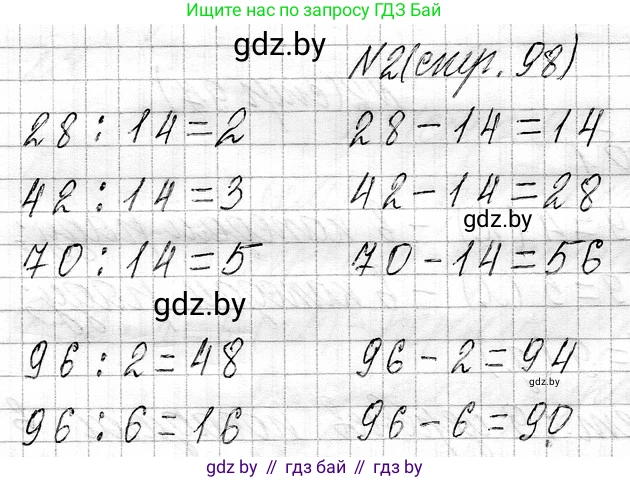 Ищите нас по запросу ГДЗ Бай
gdz.by
N2(стр. 98)
28 : 14 = 2 28 - 14 = 14
42 : 14 = 3 42 - 14 = 28
gdz.by
70 : 14 = 5 70 - 14 = 56
gdz.by
96 : 2 = 48 96 - 2 = 94
gdz.by
96 : 6 = 16 96 - 6 = 90
gdz by // гдз бай // гдз by